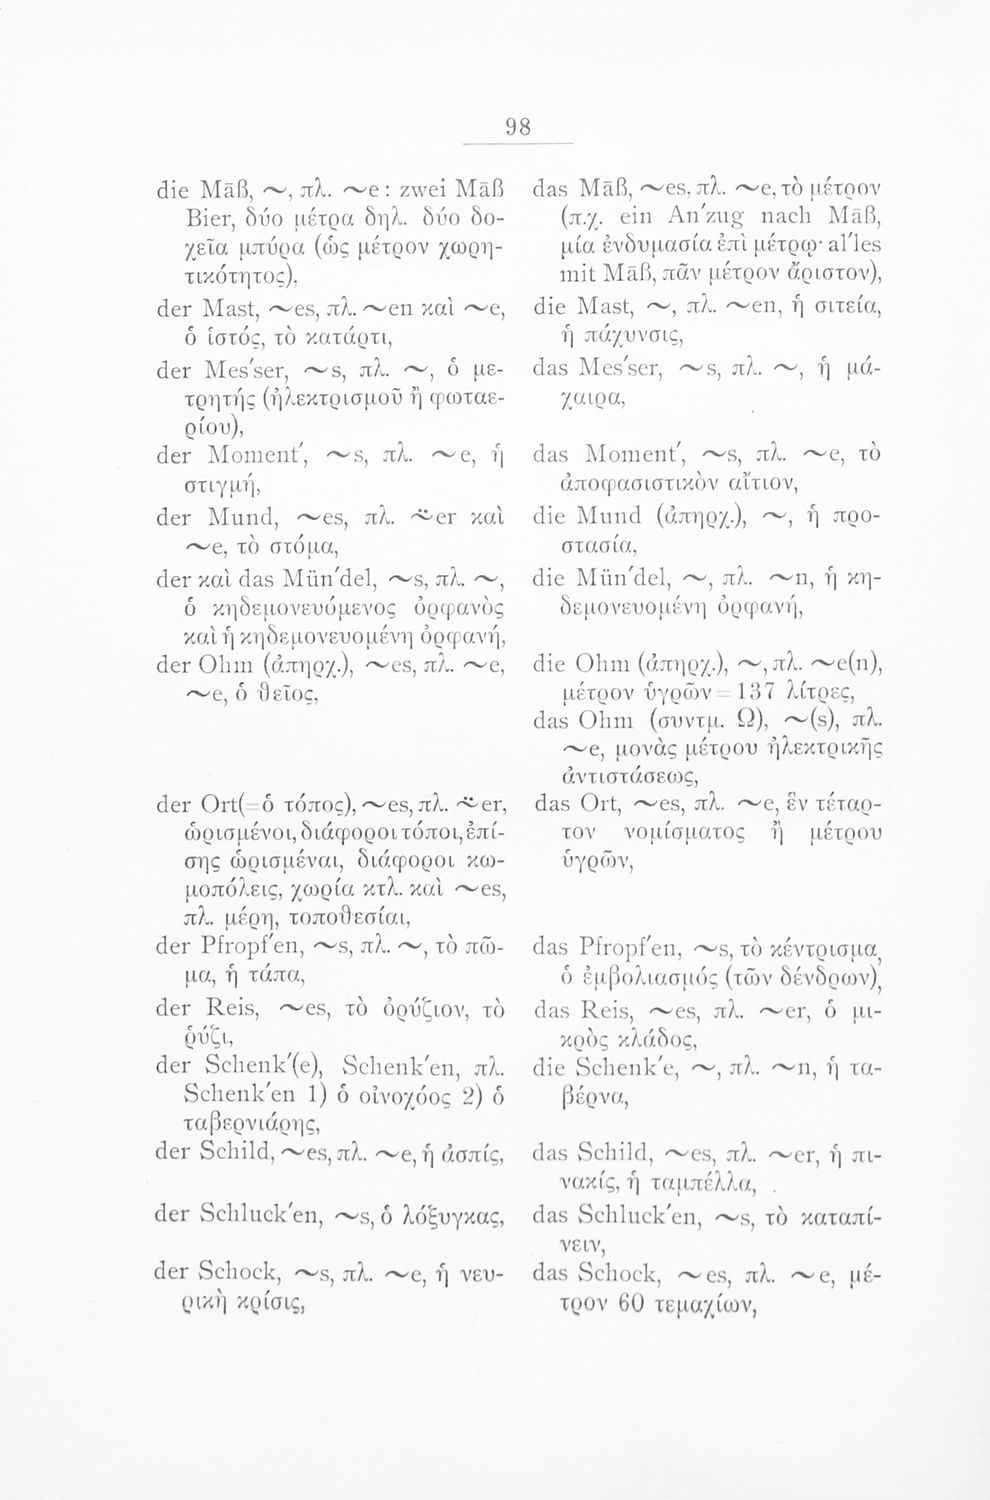 98
die Māß, ~, πλ. ~e: zwei Māß
Bier, δύο μέτρα δηλ. δύο δο-
χεῖα μπύρα (ὡς μέτρον χωρη-
τικότητος),
der Mast, ~es, πλ. ~en καὶ ~e,
ὁ ἱστός, τὸ κατάρτι,
der Mes'ser, ~s, πλ. ~, ὁ με-
τρητής (ἠλεκτρισμοῦ ἢ φωταε-
ρίου),
der Moment', ~s, πλ. ~e, ἡ
στιγμή,
der Mund, ~es, πλ. ~̈er καὶ
~e, τὸ στόμα,
der καὶ das Mün'del, ~s, πλ. ~,
ὁ κηδεμονευόμενος ὀρφανὸς
καὶ ἡ κηδεμονευομένη ὀρφανή,
der Ohm (ἀπηρχ.), ~es, πλ. ~e,
~e, ὁ θεῖος,
der Ort(=ὁ τόπος), ~es, πλ. ~̈er,
ὡρισμένοι, διάφοροι τόποι, ἐπί-
σης ὡρισμέναι, διάφοροι κω-
μοπόλεις, χωρία κτλ. καὶ ~es,
πλ. μέρη, τοποθεσίαι,
der Pfropf'en, ~s, πλ. ~, τὸ πῶ-
μα, ἡ τάπα,
der Reis, ~es, τὸ ὀρύζιον, τὸ
ῥύζι,
der Schenk'(e), Schenk'en, πλ.
Schenk'en 1) ὁ οἰνοχόος 2) ὁ
ταβερνιάρης,
der Schild, ~es, πλ. ~e, ἡ ἀσπίς,
der Schluck'en, ~s, ὁ λόξυγκας,
der Schock, ~s, πλ. ~e, ἡ νευ-
ρικὴ κρίσις,
das Māß, ~es, πλ. ~e, τὸ μέτρον
(π.χ. ein An'zug nach Māß,
μία ἐνδυμασία ἐπὶ μέτρῳ· al'les
mit Māß, πᾶν μέτρον ἄριστον),
die Mast, ~, πλ. ~en, ἡ σιτεία,
ἡ πάχυνσις,
das Mes'ser, ~s, πλ. ~, ἡ μά-
χαιρα,
das Moment', ~s, πλ. ~e, τὸ
ἀποφασιστικὸν αἴτιον,
die Mund (ἀπηρχ.), ~, ἡ προ-
στασία,
die Mün'del, ~, πλ. ~n, ἡ κη-
δεμονευομένη ὀρφανή,
die Ohm (ἀπηρχ.), ~, πλ. ~e(n),
μέτρον ὑγρῶν = 137 λίτρες,
das Ohm (συντμ. Ω), ~(s), πλ.
~e, μονὰς μέτρου ἠλεκτρικῆς
ἀντιστάσεως,
das Ort, ~es, πλ. ~e, ἓν τέταρ-
τον νομίσματος ἢ μέτρου
ὑγρῶν,
das Pfropf'en, ~s, τὸ κέντρισμα,
ὁ ἐμβολιασμός (τῶν δένδρων),
das Reis, ~es, πλ. ~er, ὁ μι-
κρὸς κλάδος,
die Schenk'e, ~, πλ. ~n, ἡ τα-
βέρνα,
das Schild, ~es, πλ. ~er, ἡ πι-
νακίς, ἡ ταμπέλλα,
das Schluck'en, ~s, τὸ καταπί-
νειν,
das Schock, ~es, πλ. ~e, μέ-
τρον 60 τεμαχίων,